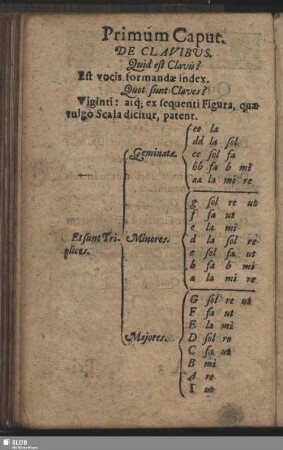 Primum Caput.
DE CLAVIBUS.
Quid est Clavis?
Est vocis formandæ index.
Quot sunt Claves?
Viginti: atq; ex sequenti Figura, quæ
vulgo Scala dicitur, patent.
Et sunt Tri-
plices.
Geminatæ.
ee la
dd la sol
cc sol fa
bb fa b mi
aa la mi re
Minores.
g sol re ut
f fa ut
e la mi
d la sol re
c sol fa ut
b fa b mi
a la mi re
Majores.
G sol re ut
F fa ut
E la mi
D sol re
C fa ut
B mi
A re
Γ ut
SLUB